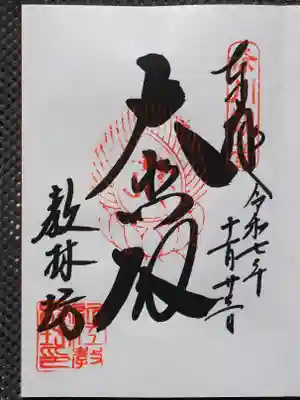 奉拝
令和七年
十一月廿三日
大悲殿
教林坊